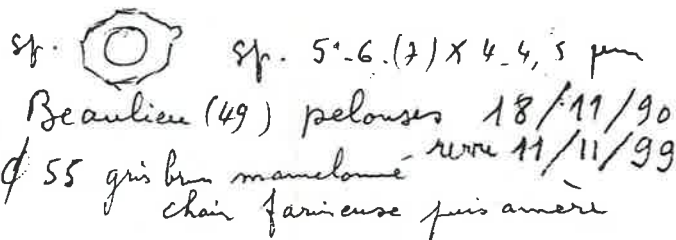 sp. sp. 5-6.(7) X 4-4,5 µm
Beaulieu (49) pelouses 18/11/90
revu 11/11/99
¢ 55 gris brun mamelonné
chair farineuse puis amère